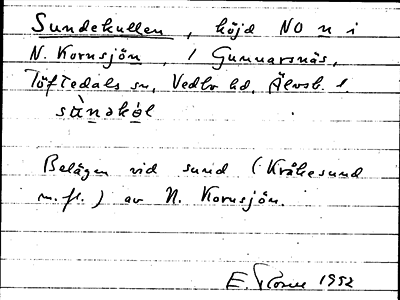 Sundekullen, höjd NO n i
N. Kornsjön, / Gunnarsnäs,
Töftedals sn, Vedbo hd, Älvsb. l
sùnəkəl
Belägen vid sund (Kråkesund
m. fl.) av N. Kornsjön.
E. 1952